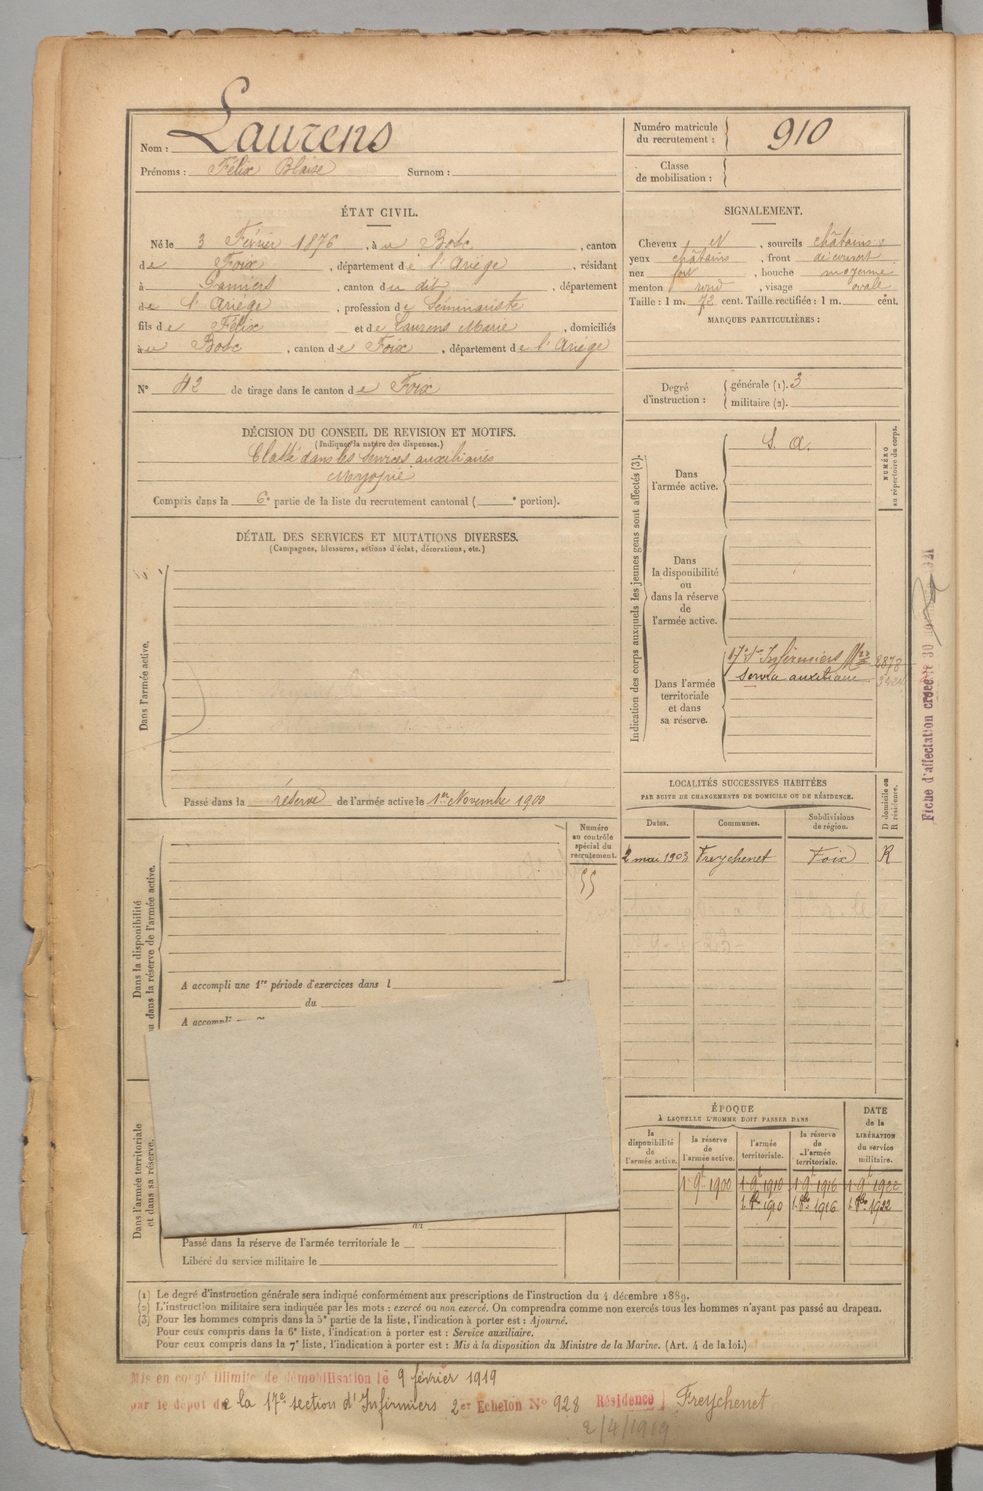 Nom : Laurens
Prénoms : Félix Blaise Surnom :
Numéro matricule du recrutement : 910
Classe de mobilisation :
ÉTAT CIVIL.
Né le 3 Février 1876, à u Bosc, canton
de Foix, département de l'Ariège, résidant
à Pamiers, canton du dit, département
de l'Ariège, profession de Séminariste
fils de Félix et de Laurens Marie, domiciliés
au Bosc, canton de Foix, département de l'Ariège
N° 42 de tirage dans le canton de Foix
SIGNALEMENT.
Cheveux et, sourcils châtains
yeux châtains, front découvert
nez fort, bouche moyenne
menton rond, visage ovale
Taille : 1 m. 72 cent. Taille rectifiée : 1 m. cent.
MARQUES PARTICULIÈRES :
Degré d'instruction : générale (1). 3
militaire (2).
DÉCISION DU CONSEIL DE REVISION ET MOTIFS.
(Indiquer la nature des dispenses.)
Classé dans les services auxiliaires
Myopie
Compris dans la 6e partie de la liste du recrutement cantonal ( e portion).
DÉTAIL DES SERVICES ET MUTATIONS DIVERSES.
(Campagnes, blessures, actions d'éclat, décorations, etc.)
Dans l'armée active.
Passé dans la réserve de l'armée active le 1er Novembre 1900
Indication des corps auxquels les jeunes gens sont affectés (3).
NUMÉRO au répertoire du corps.
Dans l'armée active.
S. a.
Dans la disponibilité ou dans la réserve de l'armée active.
Dans l'armée territoriale et dans sa réserve.
17e Son Infirmiers Mres
Service auxiliaire
Fiche d'affectation créée le 30
LOCALITÉS SUCCESSIVES HABITÉES
PAR SUITE DE CHANGEMENTS DE DOMICILE OU DE RÉSIDENCE.
Dates. Communes. Subdivisions de région. D domicile ou R résidence.
2 mai 1903 Freychenet Foix R
Numéro au contrôle spécial du recrutement.
55
Dans la disponibilité ou dans la réserve de l'armée active.
A accompli une 1re période d'exercices dans l
du
A accompli
Dans l'armée territoriale et dans sa réserve.
du
Passé dans la réserve de l'armée territoriale le
Libéré du service militaire le
ÉPOQUE
À LAQUELLE L'HOMME DOIT PASSER DANS
la disponibilité de l'armée active. la réserve de l'armée active. l'armée territoriale. la réserve de l'armée territoriale.
DATE de la LIBÉRATION du service militaire.
1 9bre 1900 1 9bre 1910 1 9bre 1916 1 9bre 1922
1 8bre 1910 1 8bre 1916 1 8bre 1922
(1) Le degré d'instruction générale sera indiqué conformément aux prescriptions de l'instruction du 4 décembre 1889.
(2) L'instruction militaire sera indiquée par les mots : exercé ou non exercé. On comprendra comme non exercés tous les hommes n'ayant pas passé au drapeau.
(3) Pour les hommes compris dans la 5e partie de la liste, l'indication à porter est : Ajourné.
Pour ceux compris dans la 6e liste, l'indication à porter est : Service auxiliaire.
Pour ceux compris dans la 7e liste, l'indication à porter est : Mis à la disposition du Ministre de la Marine. (Art. 4 de la loi.)
Mis en congé illimité de démobilisation le 9 février 1919
par le dépôt de la 17e section d'Infirmiers 2er Echelon N° 928 Résidence Freychenet
2/4/1919